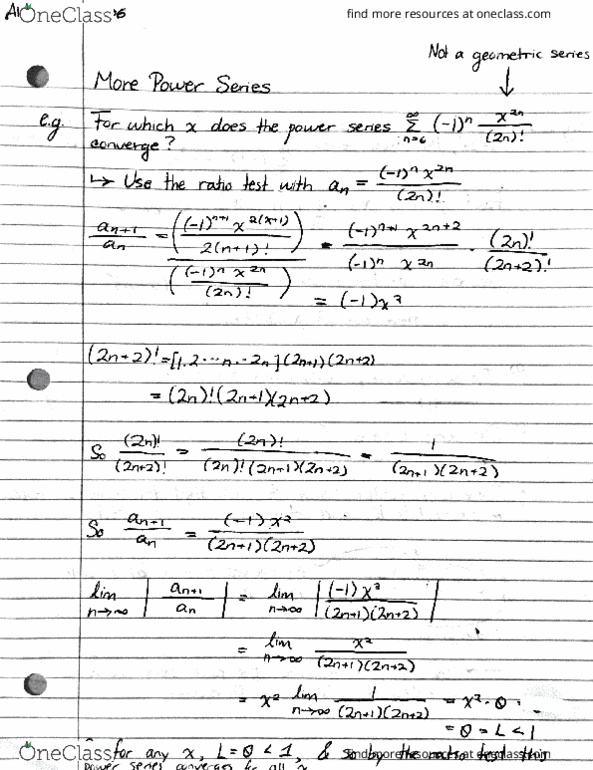 OneClass
find more resources at oneclass.com
Not a geometric series
More Power Series
e.g. For which x does the power series ∞ Σ n=0 (-1)^n x^2n / (2n)!
converge?
↳ Use the ratio test with an = (-1)^n x^2n / (2n)!
an+1 / an = ((-1)^n+1 x^2(n+1) / 2(n+1)!) / ((-1)^n x^2n / (2n)!) = (-1)^n+1 x^2n+2 / (-1)^n x^2n · (2n)! / (2n+2)!
= (-1)x²
(2n+2)! = [1.2...n...2n](2n+1)(2n+2)
= (2n)!(2n+1)(2n+2)
So (2n)! / (2n+2)! = (2n)! / (2n)!(2n+1)(2n+2) = 1 / (2n+1)(2n+2)
So an+1 / an = (-1)x² / (2n+1)(2n+2)
lim n→∞ | an+1 / an | = lim n→∞ | (-1)x² / (2n+1)(2n+2) |
= lim n→∞ x² / (2n+1)(2n+2)
= x² lim n→∞ 1 / (2n+1)(2n+2) = x²·0
= 0 = L < 1
OneClass
for any x, L=0<1, & so by the test this
find more resources at oneclass.com
power series converges for all x